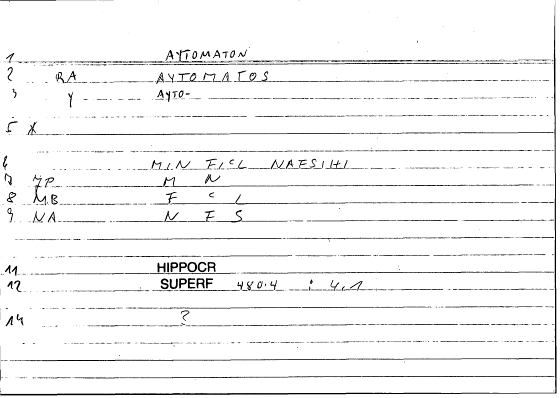 1 AYTOMATON
2 RA AYTOMATOS
3 Y AYTO-
5 X
6 MIN FICL NAFSIHI
7 7P M N
8 MB F C L
9 NA N F S
11 HIPPOCR
12 SUPERF 480.4 : 4.1
14 ?